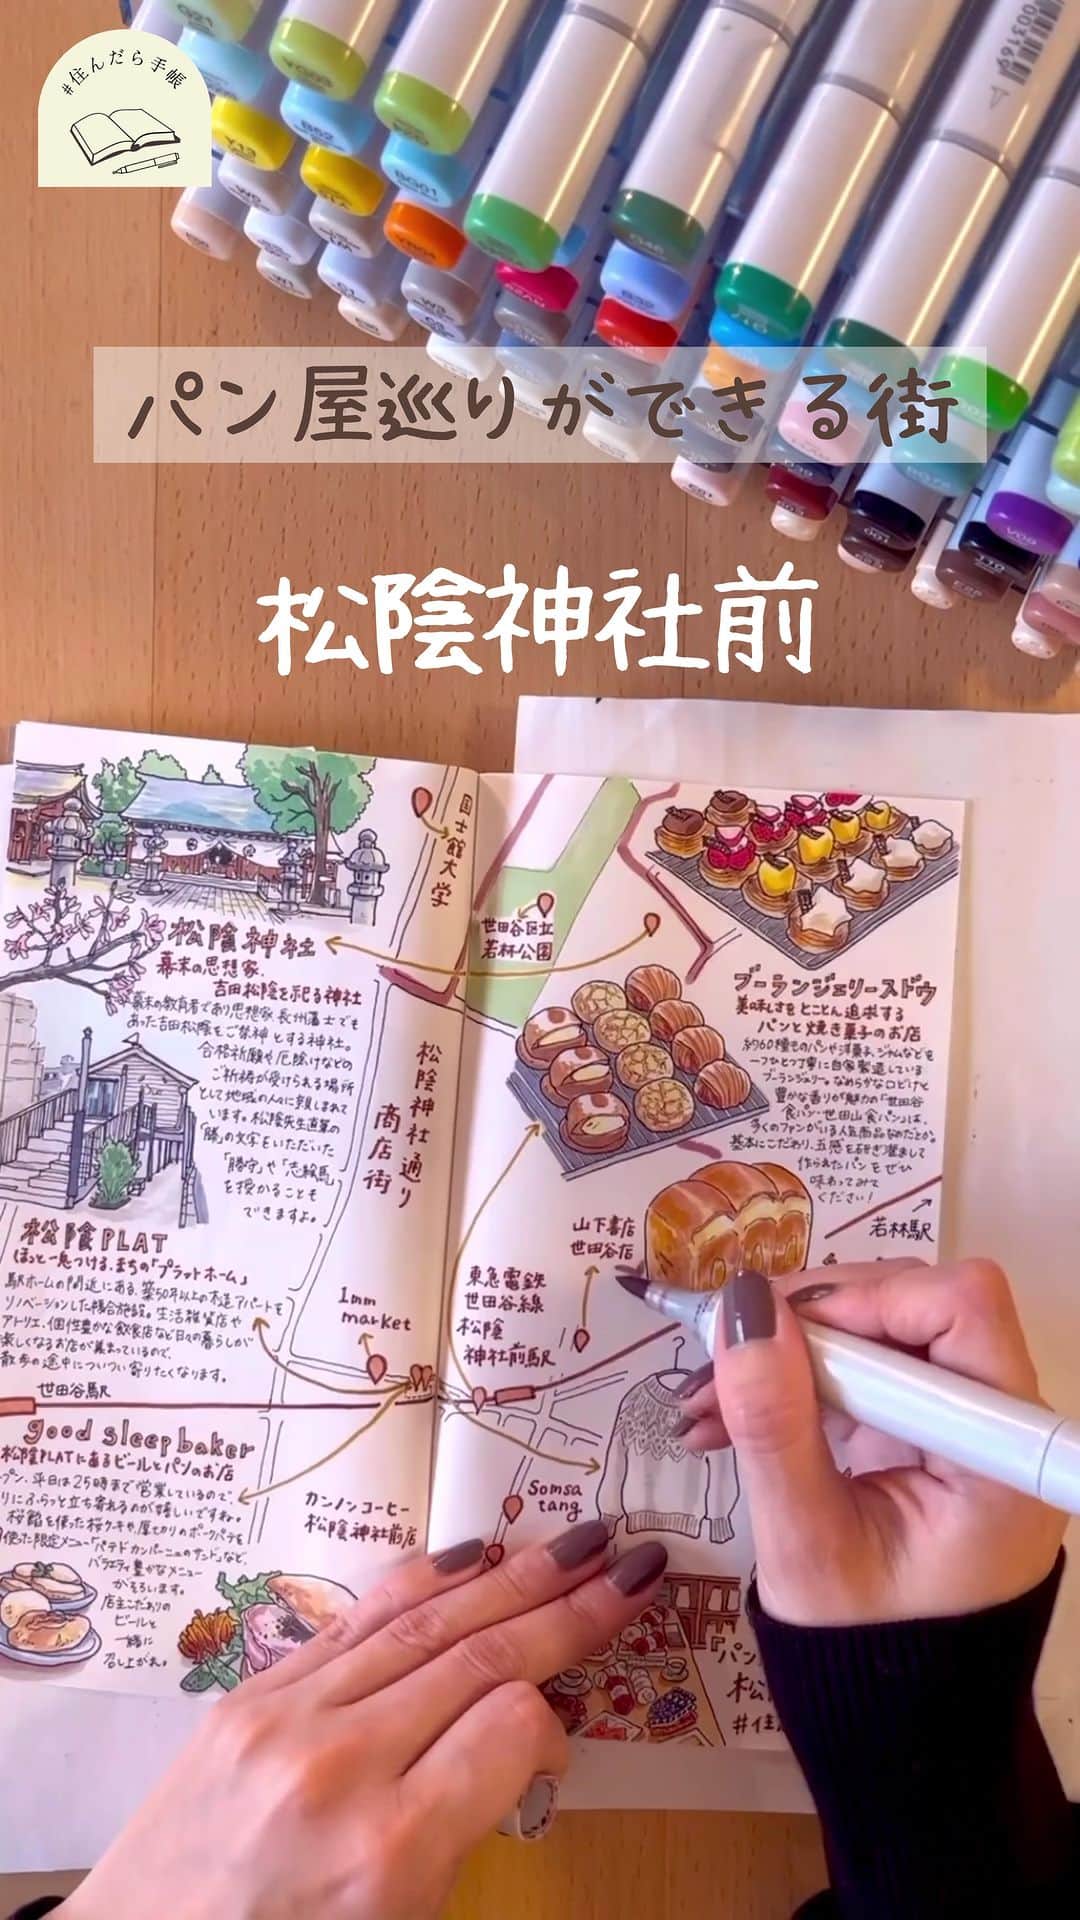 #住んだら手帳
パン屋巡りができる街
松陰神社前
国士舘大学
世田谷区立
若林公園
松陰神社
幕末の思想家、
吉田松陰を祀る神社
幕末の教育者であり思想家、長州藩士でも
あった吉田松陰をご祭神とする神社。
合格祈願や厄除けなどの
ご祈祷が受けられる場所
として地域の人に親しまれて
います。松陰先生直筆の
「勝」の文字をいただいた
「勝守」や「志絵馬」
を授かることも
できますよ。
松陰神社通り
商店街
ブーランジェリースドウ
美味しさをとことん追求する
パンと焼き菓子のお店
約60種ものパンや洋菓子、ジャムなどを
一つひとつ丁寧に自家製造している
ブーランジェリー。なめらかな口どけと
豊かな香りが魅力の「世田谷
食パン・世田山食パン」は、
多くのファンがいる人気商品なのだとか。
基本にこだわり、五感を研ぎ澄まして
作られたパンをぜひ
味わってみて
ください！
若林駅
松陰PLAT
ほっと一息つける、まちの「プラットホーム」
駅ホームの間近にある、築50年以上の木造アパートを
リノベーションした複合施設。生活雑貨店や
アトリエ、個性豊かな飲食店など日々の暮らしが
楽しくなるお店が集まっているので、
散歩の途中についつい寄りたくなります。
世田谷駅
1mm
market
山下書店
世田谷店
東急電鉄
世田谷線
松陰
神社前駅
good sleep baker
松陰PLATにあるビールとパンのお店
プン、平日は25時まで営業しているので、
りにふらっと立ち寄れるのが嬉しいですね。
桜餡を使った桜ケーキや、厚切りのポークパテを
使った限定メニュー「パテドカンパーニュのサンド」など、
バラエティ豊かなメニュー
がそろいます。
店主こだわりの
ビールと
一緒に
召し上がれ。
カンノンコーヒー
松陰神社前店
Somsa
tang
「パン
松
#住